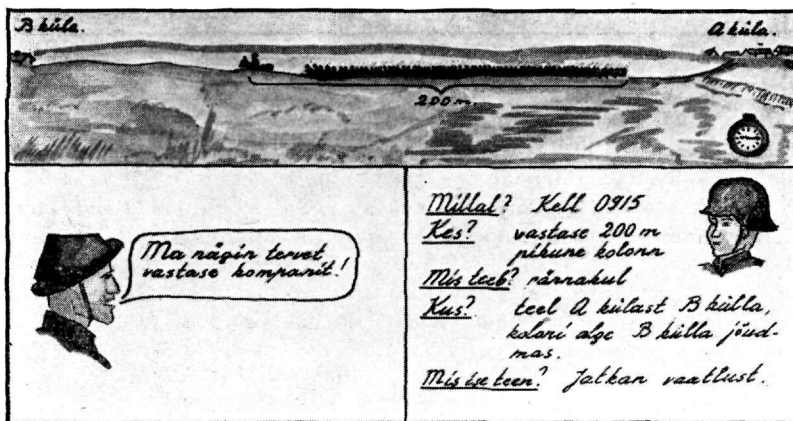 B küla.
A küla.
200 m.
Ma nägin tervet
vastase kompanit!
Millal? Kell 0915
Kes? vastase 200 m
pikune kolonn
Mis teeb? rännakul
Kus? teel A külast B külla,
koloni alge B külla jõud-
mas.
Mis ise teen? Jatkan vaatlust.